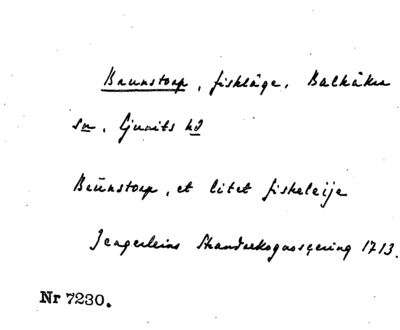 Braunstorp, fiskläge, Balkåkra
sn, Ljunits hd
Brünstorp, et litet fiskeleije
Jengerleins Skanderekognoscering 1713.
Nr 7230.